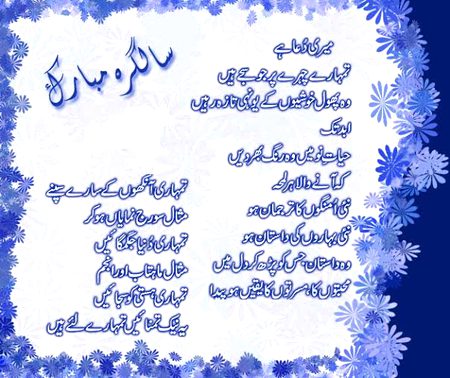 سالگرہ مبارک
میری دُعا ہے
تمہارے چہرے پر جو سجے ہیں
وہ پھول خوشیوں کے یونہی تازہ رہیں
ابد تک
حیاتِ نو میں وہ رنگ بھر دیں
کہ آنے والا ہر لمحہ
نئی اُمنگوں کا ترجمان ہو
نئی بہاروں کی داستان ہو
وہ داستان، جس کو پڑھ کر دل میں
محبتوں کا، مسرتوں کا یقیں ہو پیدا
تمہاری آنکھوں کے سارے سپنے
مثال سورج نمایاں ہو کر
تمہاری دُنیا جگمگائیں
مثال ماہتاب اور انجم
تمہاری ہستی کو سجائیں
یہ نیک تمنائیں تمہارے لئے ہیں